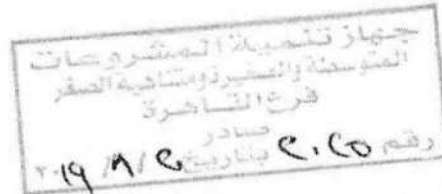 جهاز تنمية المشروعات
المتوسطة والصغيرة ومتناهية الصغر
فرع القاهرة
صادر
رقم ٢٠٢٥ بتاريخ ٢/٨/٢٠١٩